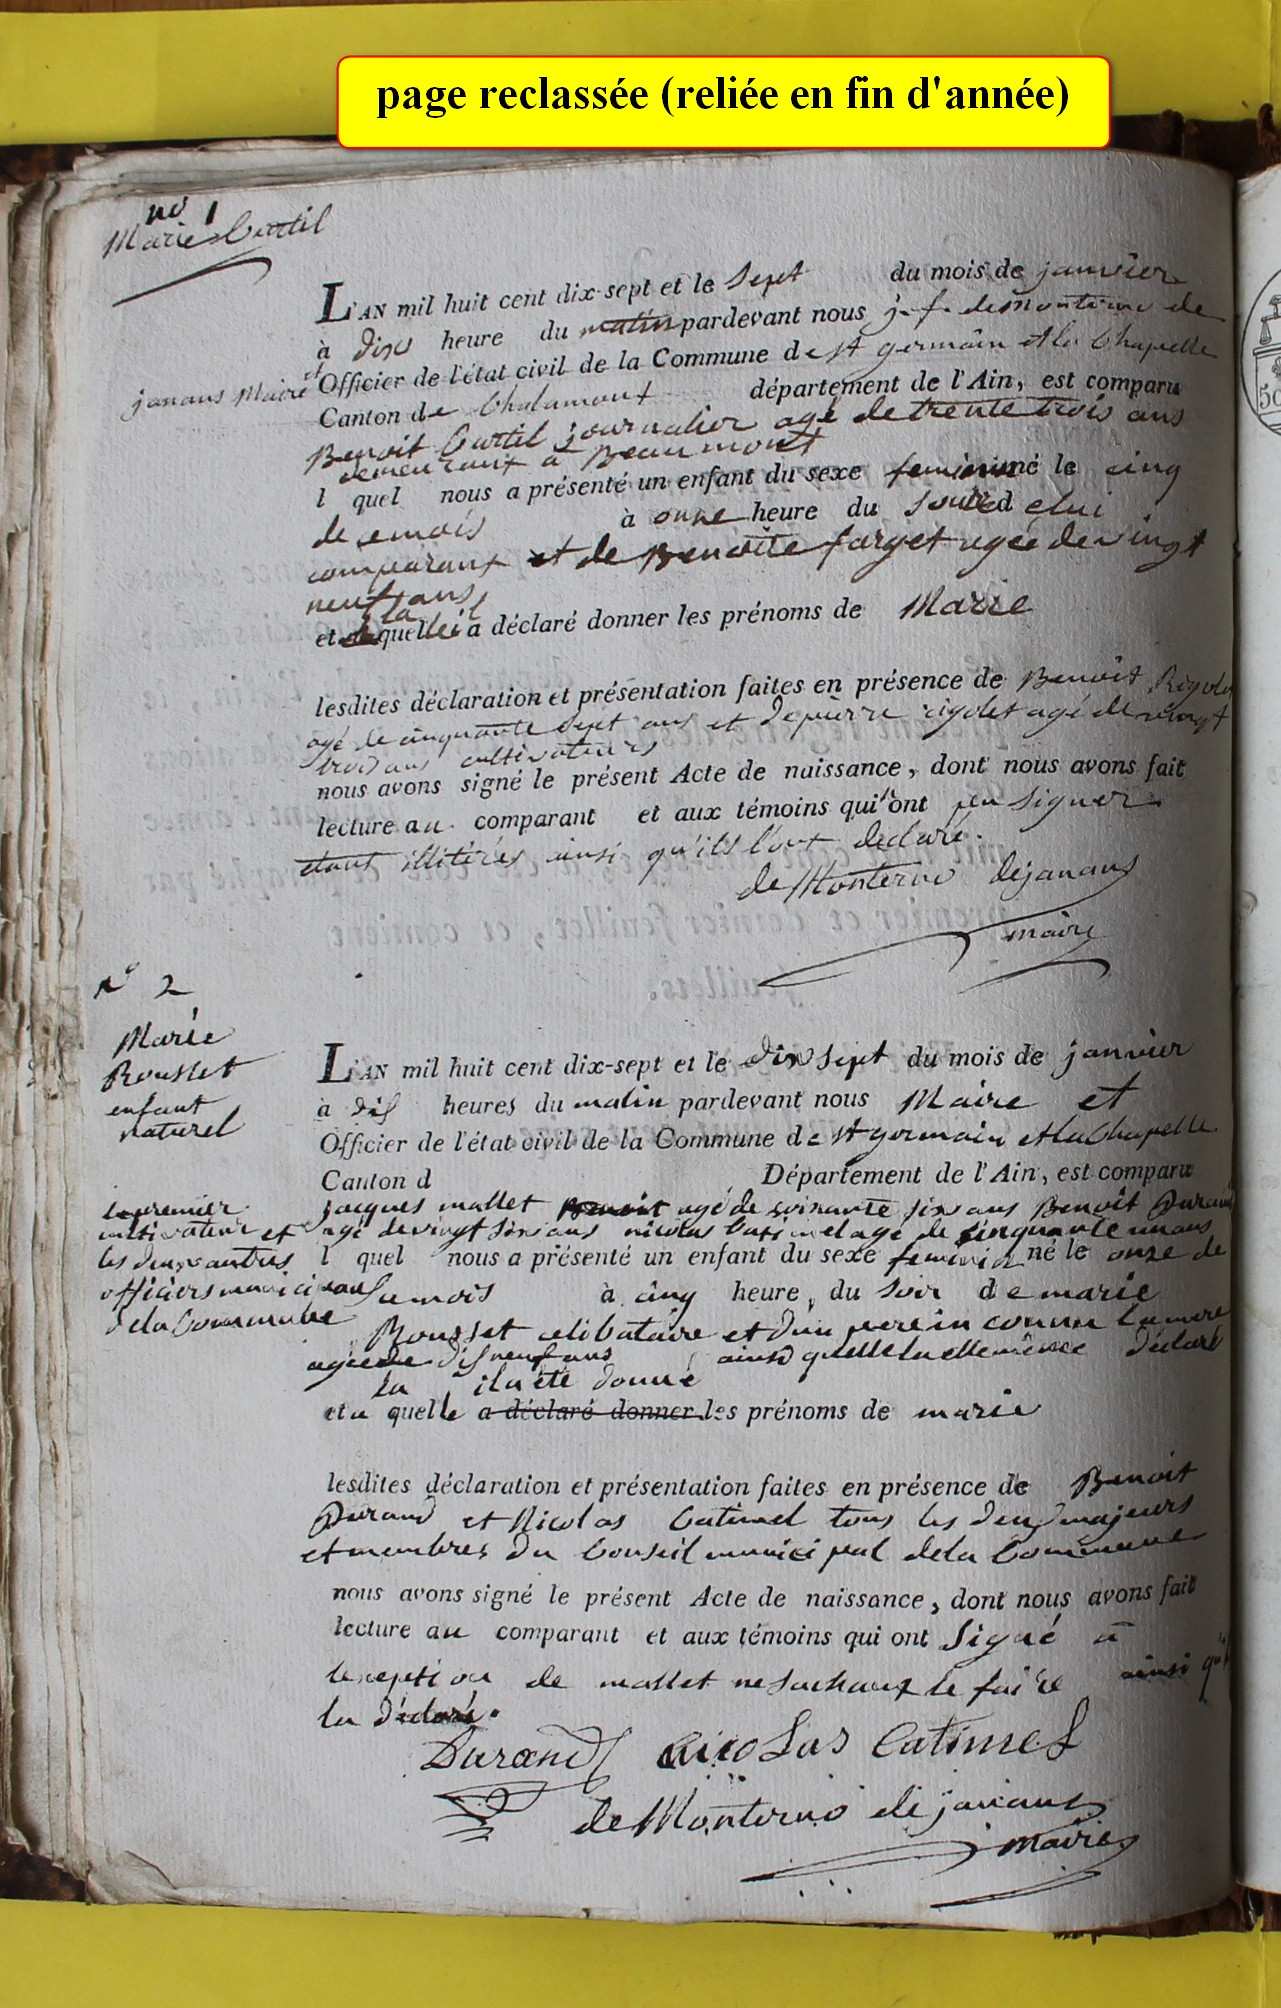 page reclassée (reliée en fin d'année)
no 1
Marie Curtil
L'AN mil huit cent dix-sept et le Sept du mois de janvier
à dixs heure du matin pardevant nous j. f. demonterno de
janans Maire et
Officier de l'état civil de la Commune de st germain et la Chapelle
Canton de Chalamont département de l'Ain, est comparu
Benoit Curtil journalier agé de trente trois ans
demeurant a Beaumont
l quel nous a présenté un enfant du sexe feminin né le cinq
de ce mois à onze heure du soir de lui
comparant et de Benoite farget agée de vingt
neuf ans
et la quelle il a déclaré donner les prénoms de Marie
lesdites déclaration et présentation faites en présence de Benoit Rigolet
agé de cinquante sept ans et de pierre rigolet agé de vingt
trois ans cultivateurs
nous avons signé le présent Acte de naissance, dont nous avons fait
lecture au comparant et aux témoins qui n'ont peu signer
etant illitérés ainsi qu'ils l'ont declaré.
de Monterno dejanans
maire
no 2
Marie
Rousset
enfant
naturel
L'AN mil huit cent dix-sept et le dix sept du mois de janvier
à dis heures du matin pardevant nous Maire et
Officier de l'état civil de la Commune de st germain et la Chapelle
Canton d Département de l'Ain, est comparu
jacques mallet Benoit agé de soixante six ans Benoit Durand
agé de vingt six ans nicolas Catimel agé de cinquante un ans
le premier
cultivateur et
les deux autres
officiers municipaux
de la Commune
l quel nous a présenté un enfant du sexe feminin né le onze de
du mois à cinq heure, du soir de marie
Rousset celibataire et d'un pere inconnu la mere
agée de dis neuf ans ainsi quelle la elle même déclaré
la il a été donné
et a quelle a déclaré donner les prénoms de marie
lesdites déclaration et présentation faites en présence de Benoit
Durand et Nicolas Catimel tous les deux majeurs
et membres du Conseil municipal de la Commune
nous avons signé le présent Acte de naissance, dont nous avons fait
lecture au comparant et aux témoins qui ont Signé a
lexeption de mallet ne sachant le faire ainsi qu'il
la déclaré.
Durand nicolas Catimel
de Monterno dejanans
maire